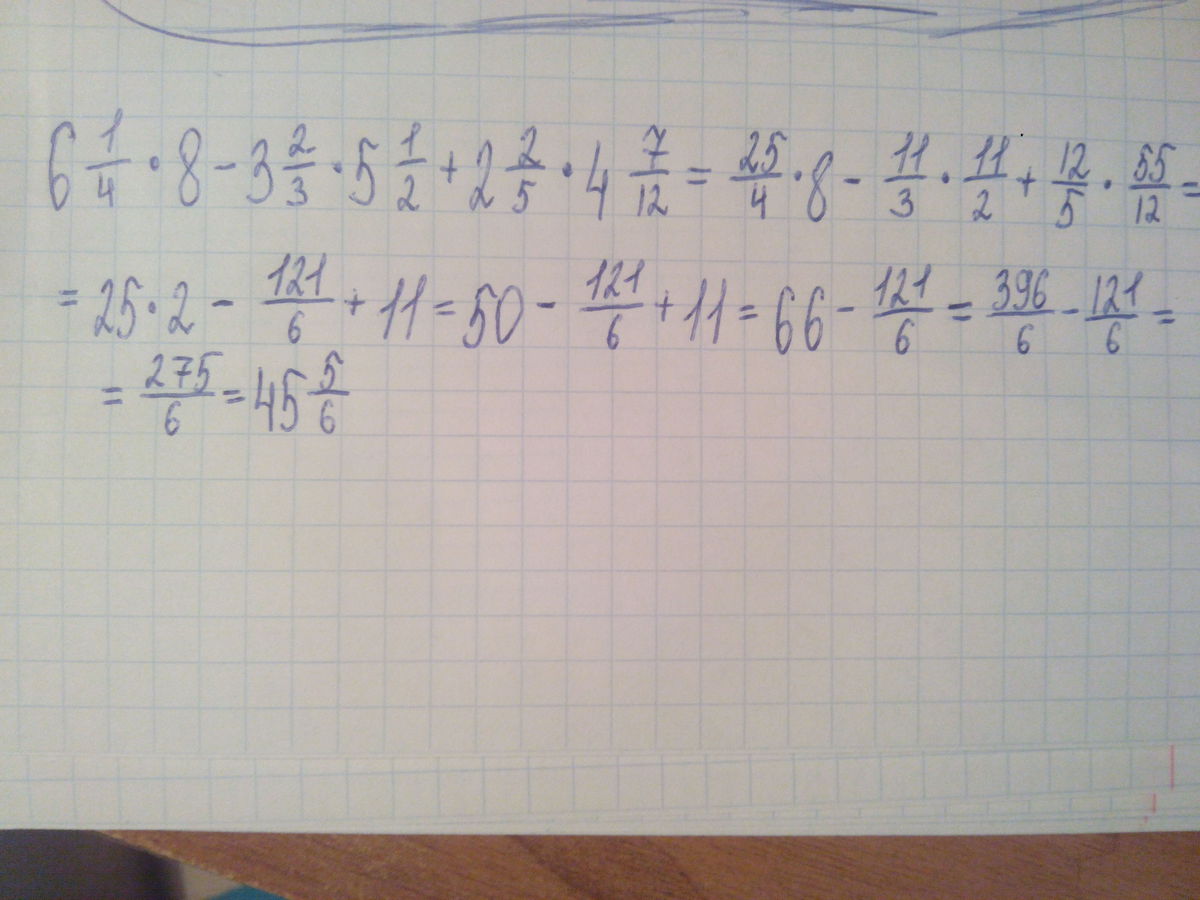 6 1/4 · 8 - 3 2/3 · 5 1/2 + 2 2/5 · 4 7/12 = 25/4 · 8 - 11/3 · 11/2 + 12/5 · 55/12 =
= 25 · 2 - 121/6 + 11 = 50 - 121/6 + 11 = 66 - 121/6 = 396/6 - 121/6 =
= 275/6 = 45 5/6